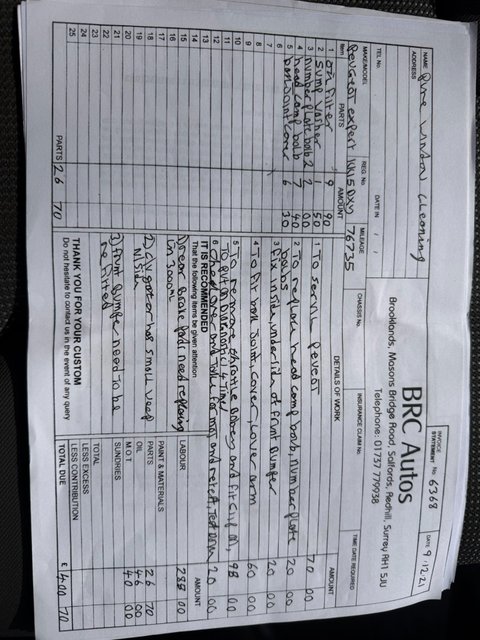 BRC Autos
Brooklands, Masons Bridge Road, Salfords, Redhill, Surrey RH1 5JU
Telephone: 01737 779938
INVOICE
STATEMENT No. 6368
DATE 9.12.21
NAME Pure Window Cleaning
ADDRESS
TEL No.
DATE IN / /
MAKE/MODEL
REG. No.
MILEAGE
CHASSIS No.
INSURANCE CLAIM No.
TIME DATE REQUIRED
Peugeot expert
76735
Item PARTS AMOUNT
1 oil filter 9 90
2 Sump washer 1 50
3 number plate bulb 2 2 00
4 head lamp bulb 7 40
5 ball joint cover 6 30
6
7
8
9
10
11
12
13
14
15
16
17
18
19
20
21
22
23
24
25
PARTS 26 70
DETAILS OF WORK AMOUNT
1 To service Peugeot 70 00
2 To replace head lamp bulb, number plate 20 00
bulbs
3 fix inside underside of front bumper 20 00
4 To fit ball joint, cover, lower arm 60 00
5 To remove throttle body and fit 98 00
6 check over and take for mot and retest, 20 00
IT IS RECOMMENDED
That the following items be given attention
1) rear brake pads need replacing
in 3000ml
2) has small
N/Side
3) front bumper need to be
re fitted
THANK YOU FOR YOUR CUSTOM
Do not hesitate to contact us in the event of any query
AMOUNT
LABOUR 288 00
PAINT & MATERIALS
PARTS 26 70
OIL 46 00
M.O.T 40 00
SUNDRIES
TOTAL
LESS EXCESS
LESS CONTRIBUTION
TOTAL DUE £ 400 70